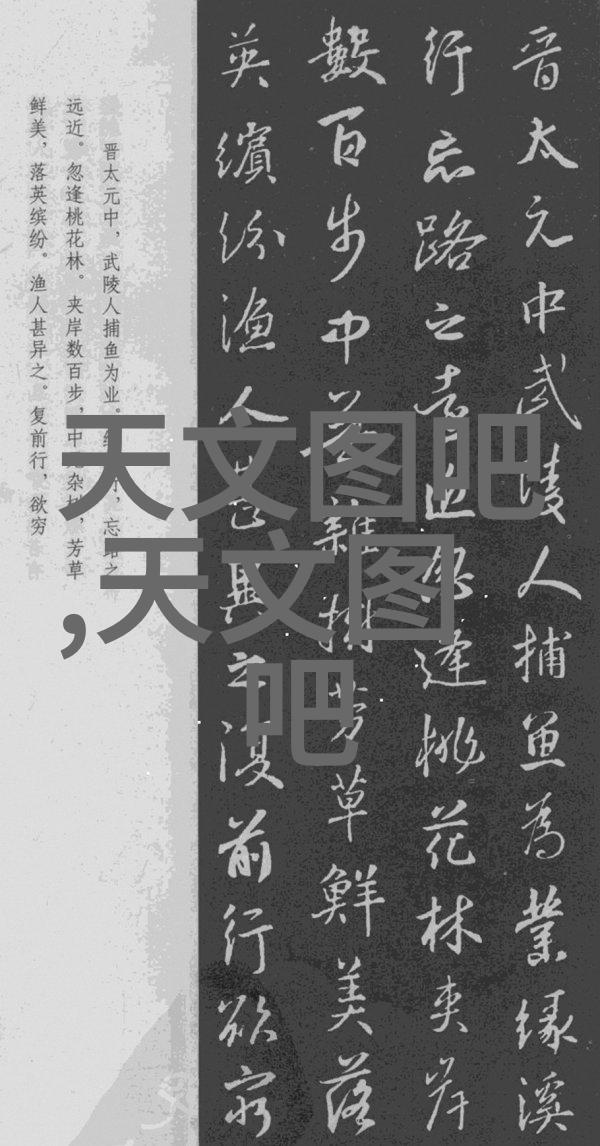 晋太元中武陵人捕鱼为業缘溪
行忘路之远近忽逢桃花林夹岸
數百步中无雜樹芳草鮮美落
英繽纷渔人甚異之復前行欲窮
晋太元中，武陵人捕鱼为业。忘路之
远近。忽逢桃花林。夹岸数百步，中杂树，芳草
鲜美，落英缤纷。渔人甚异之。复前行，欲穷
天文图吧
,天文图
吧